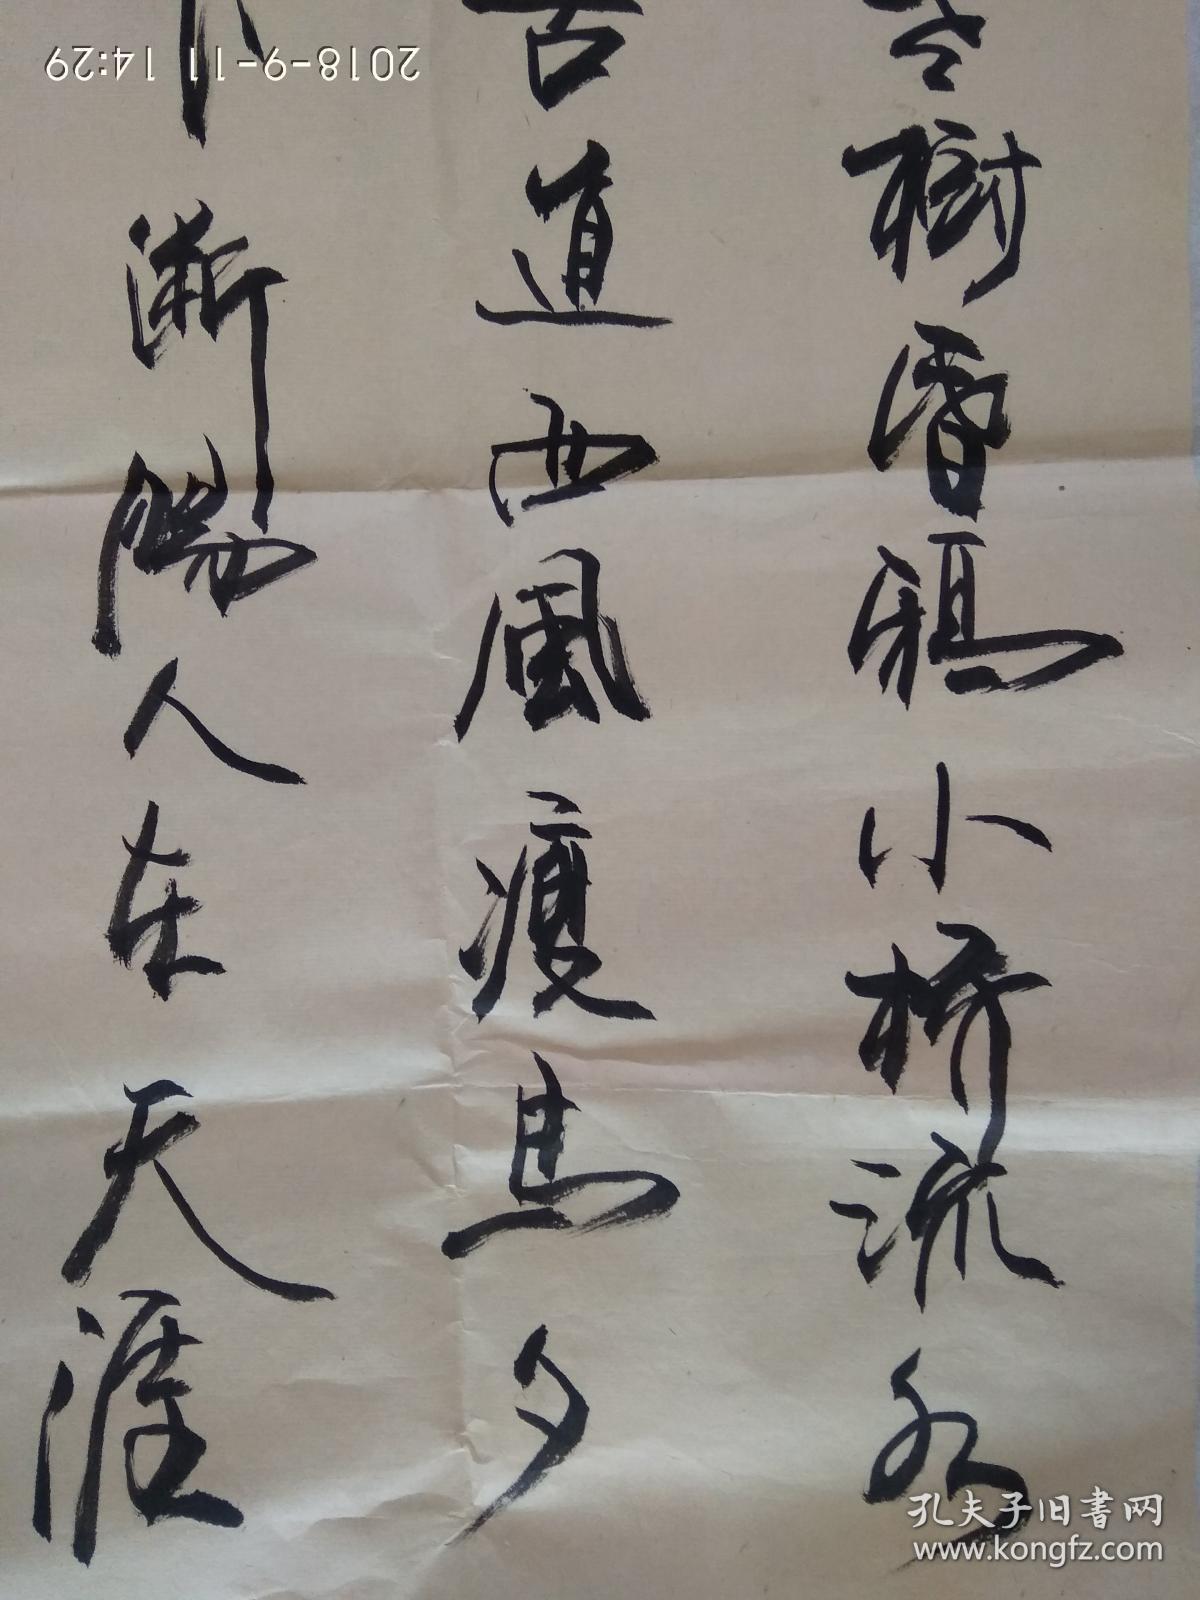 樹昏鴉小桥流水
古道西風瘦馬夕
下断腸人在天涯
2018-9-11 14:29
孔夫子旧書网
www.kongfz.com